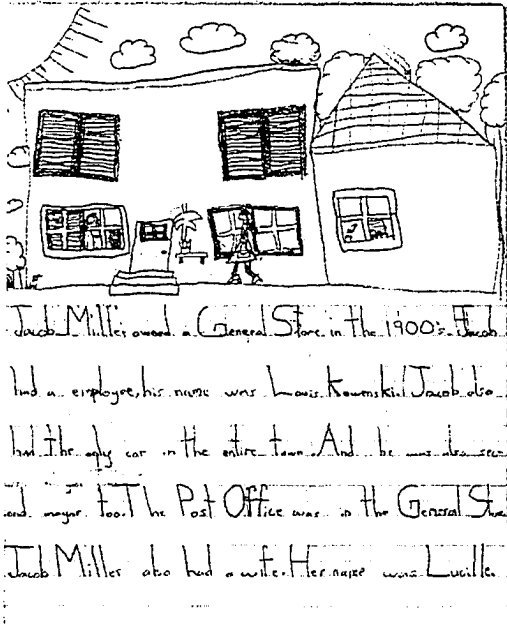 Jacob Miller owend a General Store in the 1900's. Jacob
had a employee, his name was Louis Kowenski. Jacob also
had the only car in the entire town. And he was also sec-
ond mayor too. The Post Office was in the General Store
Jacob Miller also had a wife. Her name was Lucille.